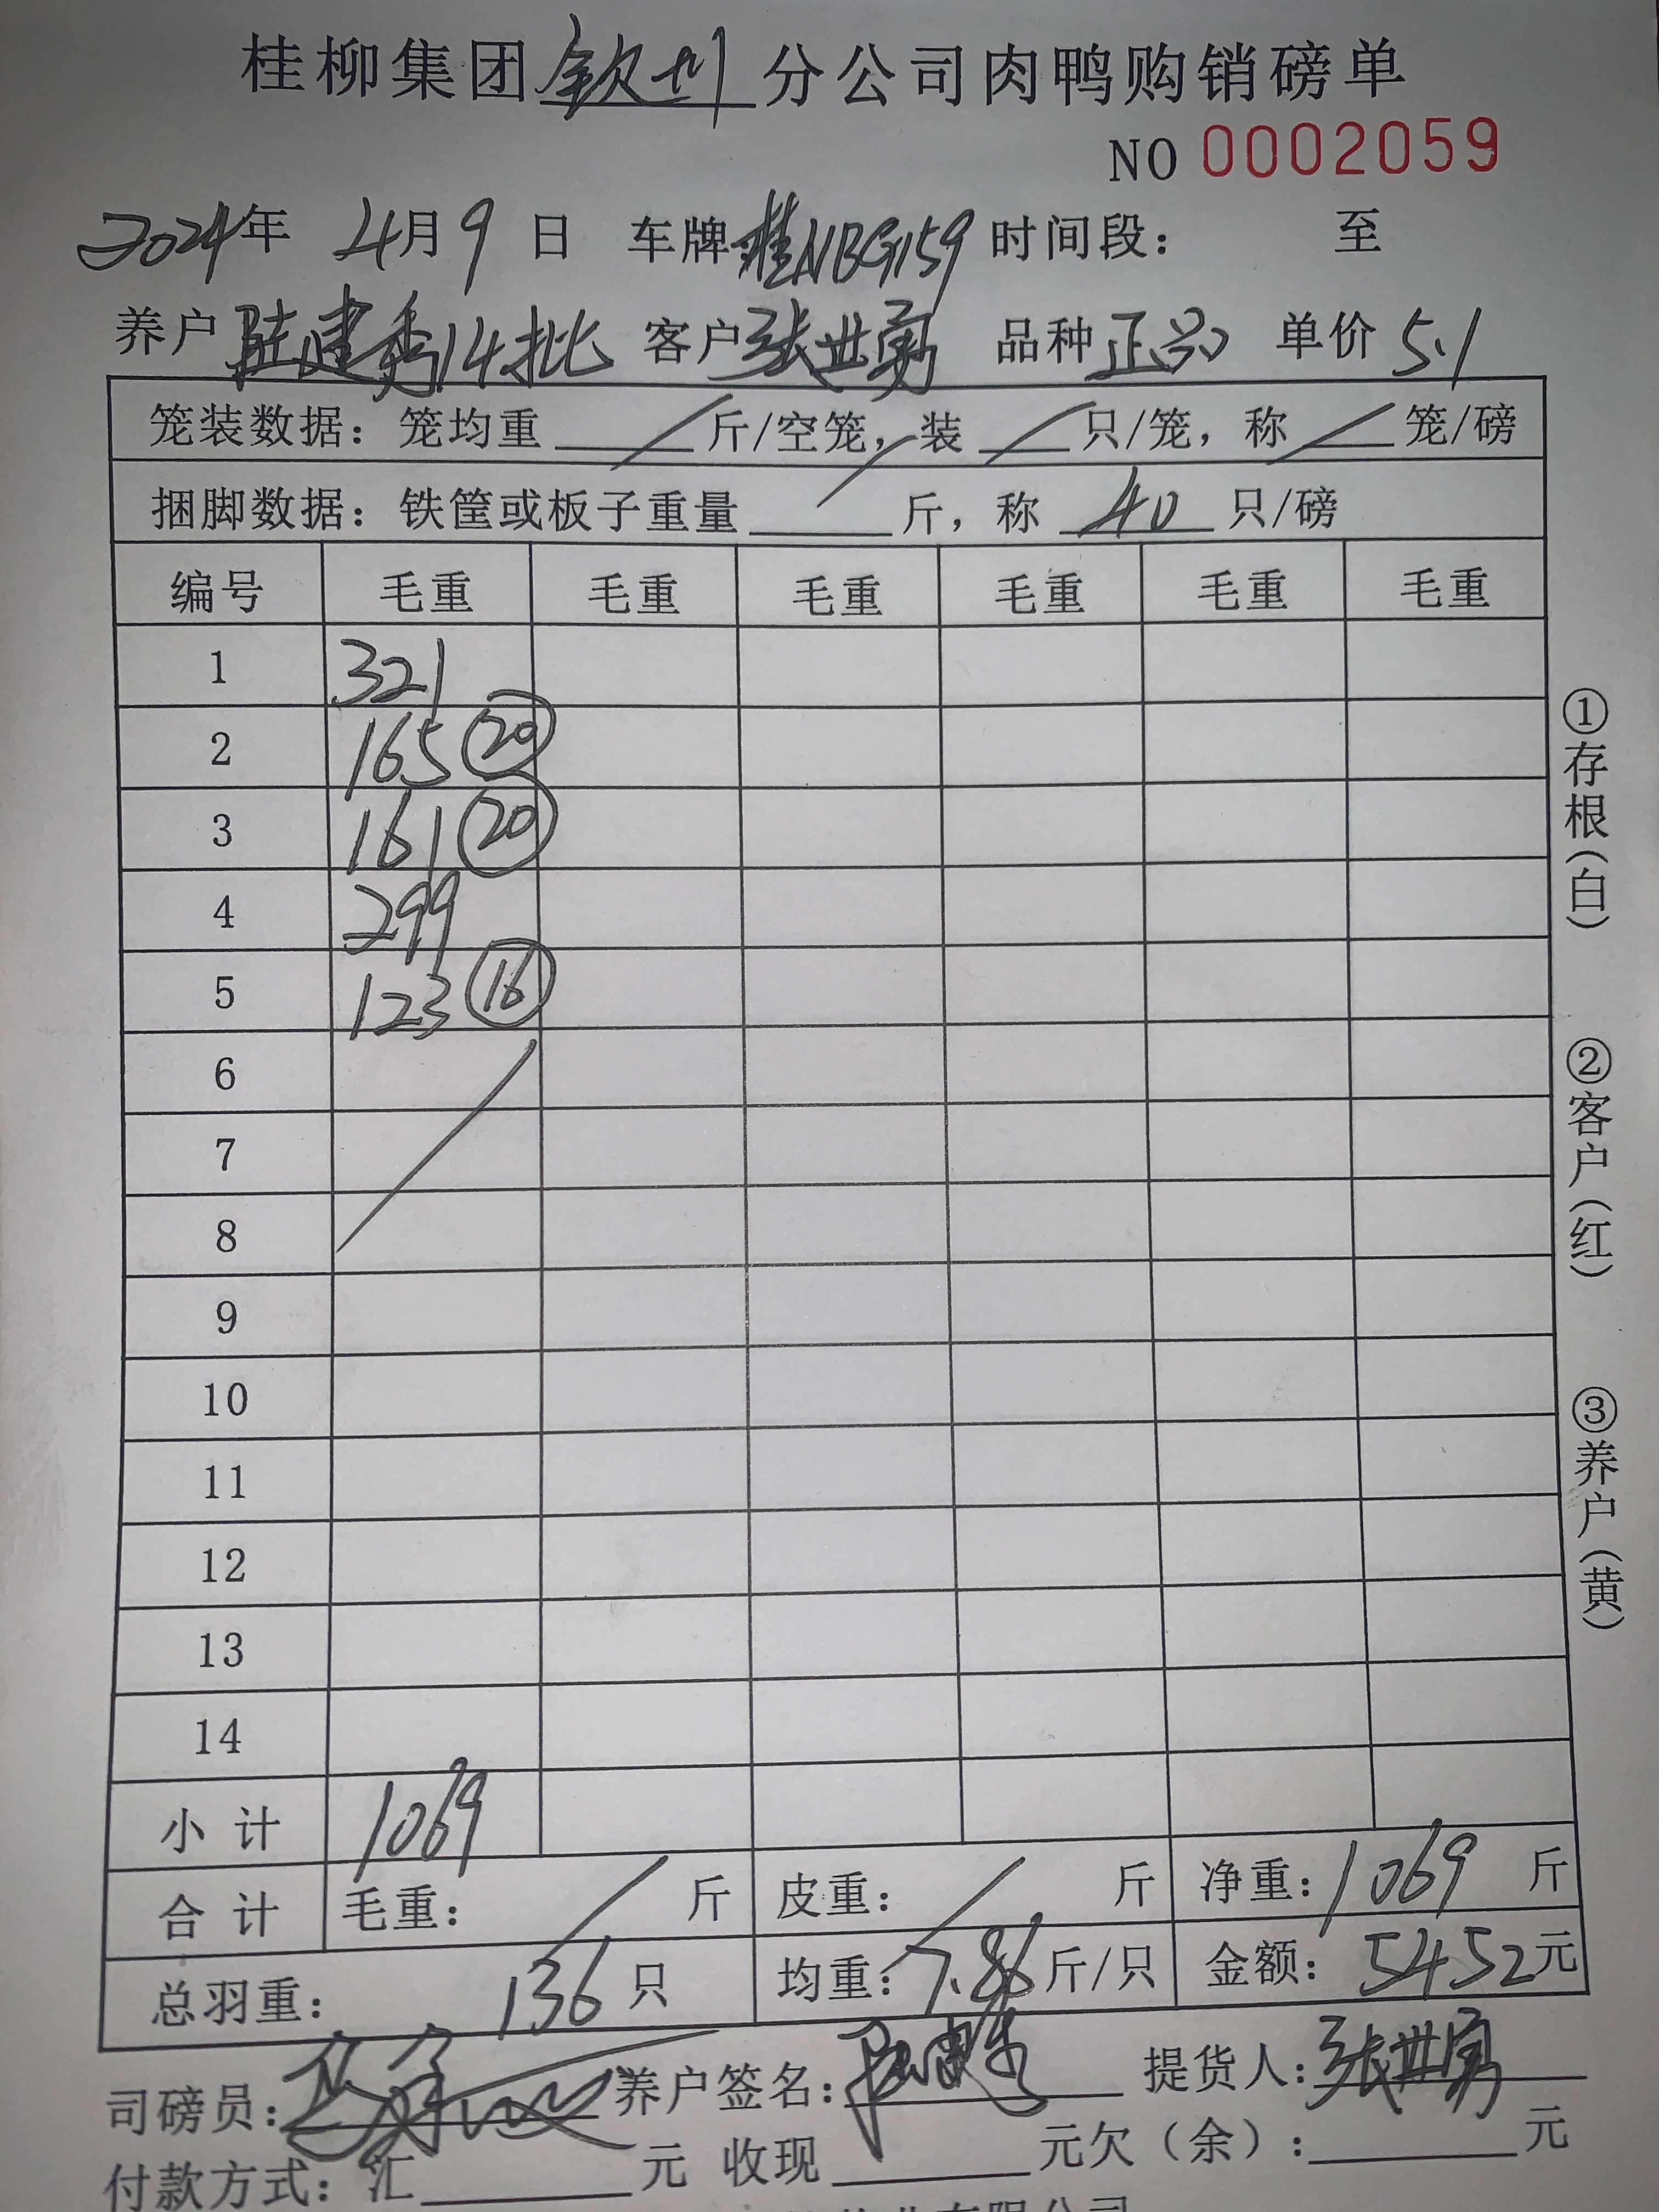 桂柳集团钦州分公司肉鸭购销磅单
NO 0002059
2024年 4月9日 车牌桂NBG159 时间段： 至
养户陆建秀14批 客户张世勇 品种正品 单价5.1
笼装数据：笼均重/斤/空笼，装/只/笼，称/笼/磅
捆脚数据：铁筐或板子重量/斤，称40只/磅
编号 毛重 毛重 毛重 毛重 毛重 毛重
1 321
2 165 ⑳
3 161 ⑳
4 299
5 123 ⑯
6
7
8
9
10
11
12
13
14
小计 1069
合计 毛重：/斤 皮重：/斤 净重：1069斤
总羽重：136只 均重：7.86斤/只 金额：5452元
司磅员： 养户签名： 提货人：张世勇
付款方式：汇 元 收现 元欠（余）： 元
①存根（白）
②客户（红）
③养户（黄）